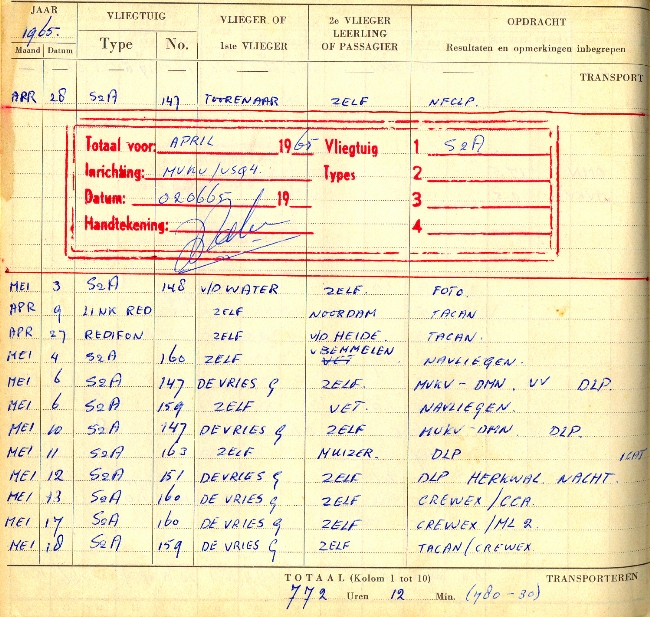 JAAR VLIEGTUIG VLIEGER OF 2e VLIEGER OPDRACHT
1965. LEERLING
Maand Datum Type No. 1ste VLIEGER OF PASSAGIER Resultaten en opmerkingen inbegrepen
TRANSPORT
APR 28 S2A 147 TOORENAAR ZELF NFCLP.
Totaal voor: APRIL 1965 Vliegtuig 1 S2A
Inrichting: MVKV/VSQ4. Types 2
Datum: 020665 19 3
Handtekening: 4
MEI 3 S2A 148 V/D WATER ZELF. FOTO.
APR 9 LINK RED ZELF NOORDAM TACAN
APR 27 REDIFON ZELF V/D HEIDE. TACAN.
MEI 4 S2A 160 ZELF v BEMMELEN VET NAVLIEGEN.
MEI 6 S2A 147 DE VRIES G ZELF. MVKV-DMN. VV DLP.
MEI 6 S2A 159 ZELF VET. NAVLIEGEN.
MEI 10 S2A 147 DEVRIES G ZELF MVKV-DMN DLP.
MEI 11 S2A 163 ZELF MUIZER. DLP
MEI 12 S2A 151 DEVRIES G ZELF DLP HERKWAL NACHT.
MEI 13 S2A 160 DE VRIES G ZELF CREWEX/CCA.
MEI 17 S2A 160 DE VRIES G ZELF CREWEX/ML2.
MEI 18 S2A 159 DE VRIES G ZELF TACAN/CREWEX.
TOTAAL (Kolom 1 tot 10) TRANSPORTEREN
772 Uren 12 Min. (780-30)